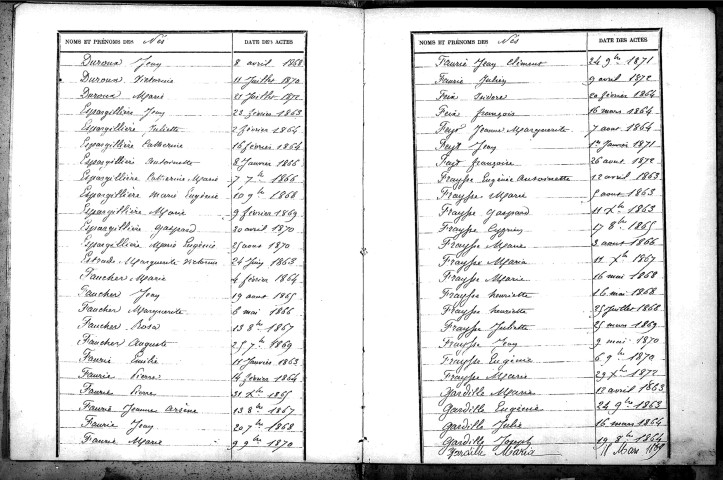 NOMS ET PRÉNOMS DES Nés DATE DES ACTES
Duroux Jean 8 avril 1868
Duroux Victorine 11 Juillet 1870
Duroux Marie 21 Juillet 1872
Espargillière Jean 23 février 1863
Espargillière Juliette 2 février 1864
Espargillière Catherine 16 février 1864
Espargillière Antoinette 8 Janvier 1866
Espargillière Catherine Marie 7 7bre 1866
Espargillière Marie Eugénie 10 9bre 1868
Espargillière Marie 9 février 1869
Espargillière Gaspard 20 avril 1870
Espargillière Marie Eugénie 25 aout 1870
Estrade Marguerite Victorine 24 Juin 1863
Faucher Marie 4 février 1864
Faucher Jean 19 aout 1865
Faucher Marguerite 6 mai 1866
Faucher Rosa 13 8bre 1867
Faucher Auguste 25 7bre 1869
Faurie Emilie 11 Janvier 1863
Faurie Pierre 14 février 1864
Faurie Pierre 31 Xbre 1865
Faurie Jeanne Arsène 13 8bre 1867
Faurie Jean 20 7bre 1868
Faurie Marie 9 9bre 1870
NOMS ET PRÉNOMS DES Nés DATE DES ACTES
Faurié Jean Clément 24 9bre 1871
Faurie Julien 9 avril 1872
Feix Isidore 20 février 1864
Feix françois 16 mars 1864
Fayt Jeanne Marguerite 7 aout 1864
Fayt Jean 1er Janvier 1871
Fayt françoise 26 aout 1872
Fraysse Eugénie Antoinette 22 avril 1863
Fraysse Marie 5 aout 1863
Fraysse Gaspard 11 Xbre 1863
Fraysse Cyprien 17 8bre 1865
Fraysse Marie 3 aout 1866
Fraysse Maria 11 Xbre 1867
Fraysse Marie 16 mai 1868
Fraysse henriette 16 mai 1868
Fraysse henriette 25 Juillet 1868
Fraysse Juliette 25 mars 1869
Fraysse Jean 9 mai 1870
Fraysse Eugénie 6 9bre 1870
Fraysse Marie 23 Xbre 1872
Gardille Marie 12 avril 1863
Gardille Eugénie 24 9bre 1863
Gardille Julie 16 mars 1864
Gardille Joseph 19 8bre 1864
Maria 11 Mars